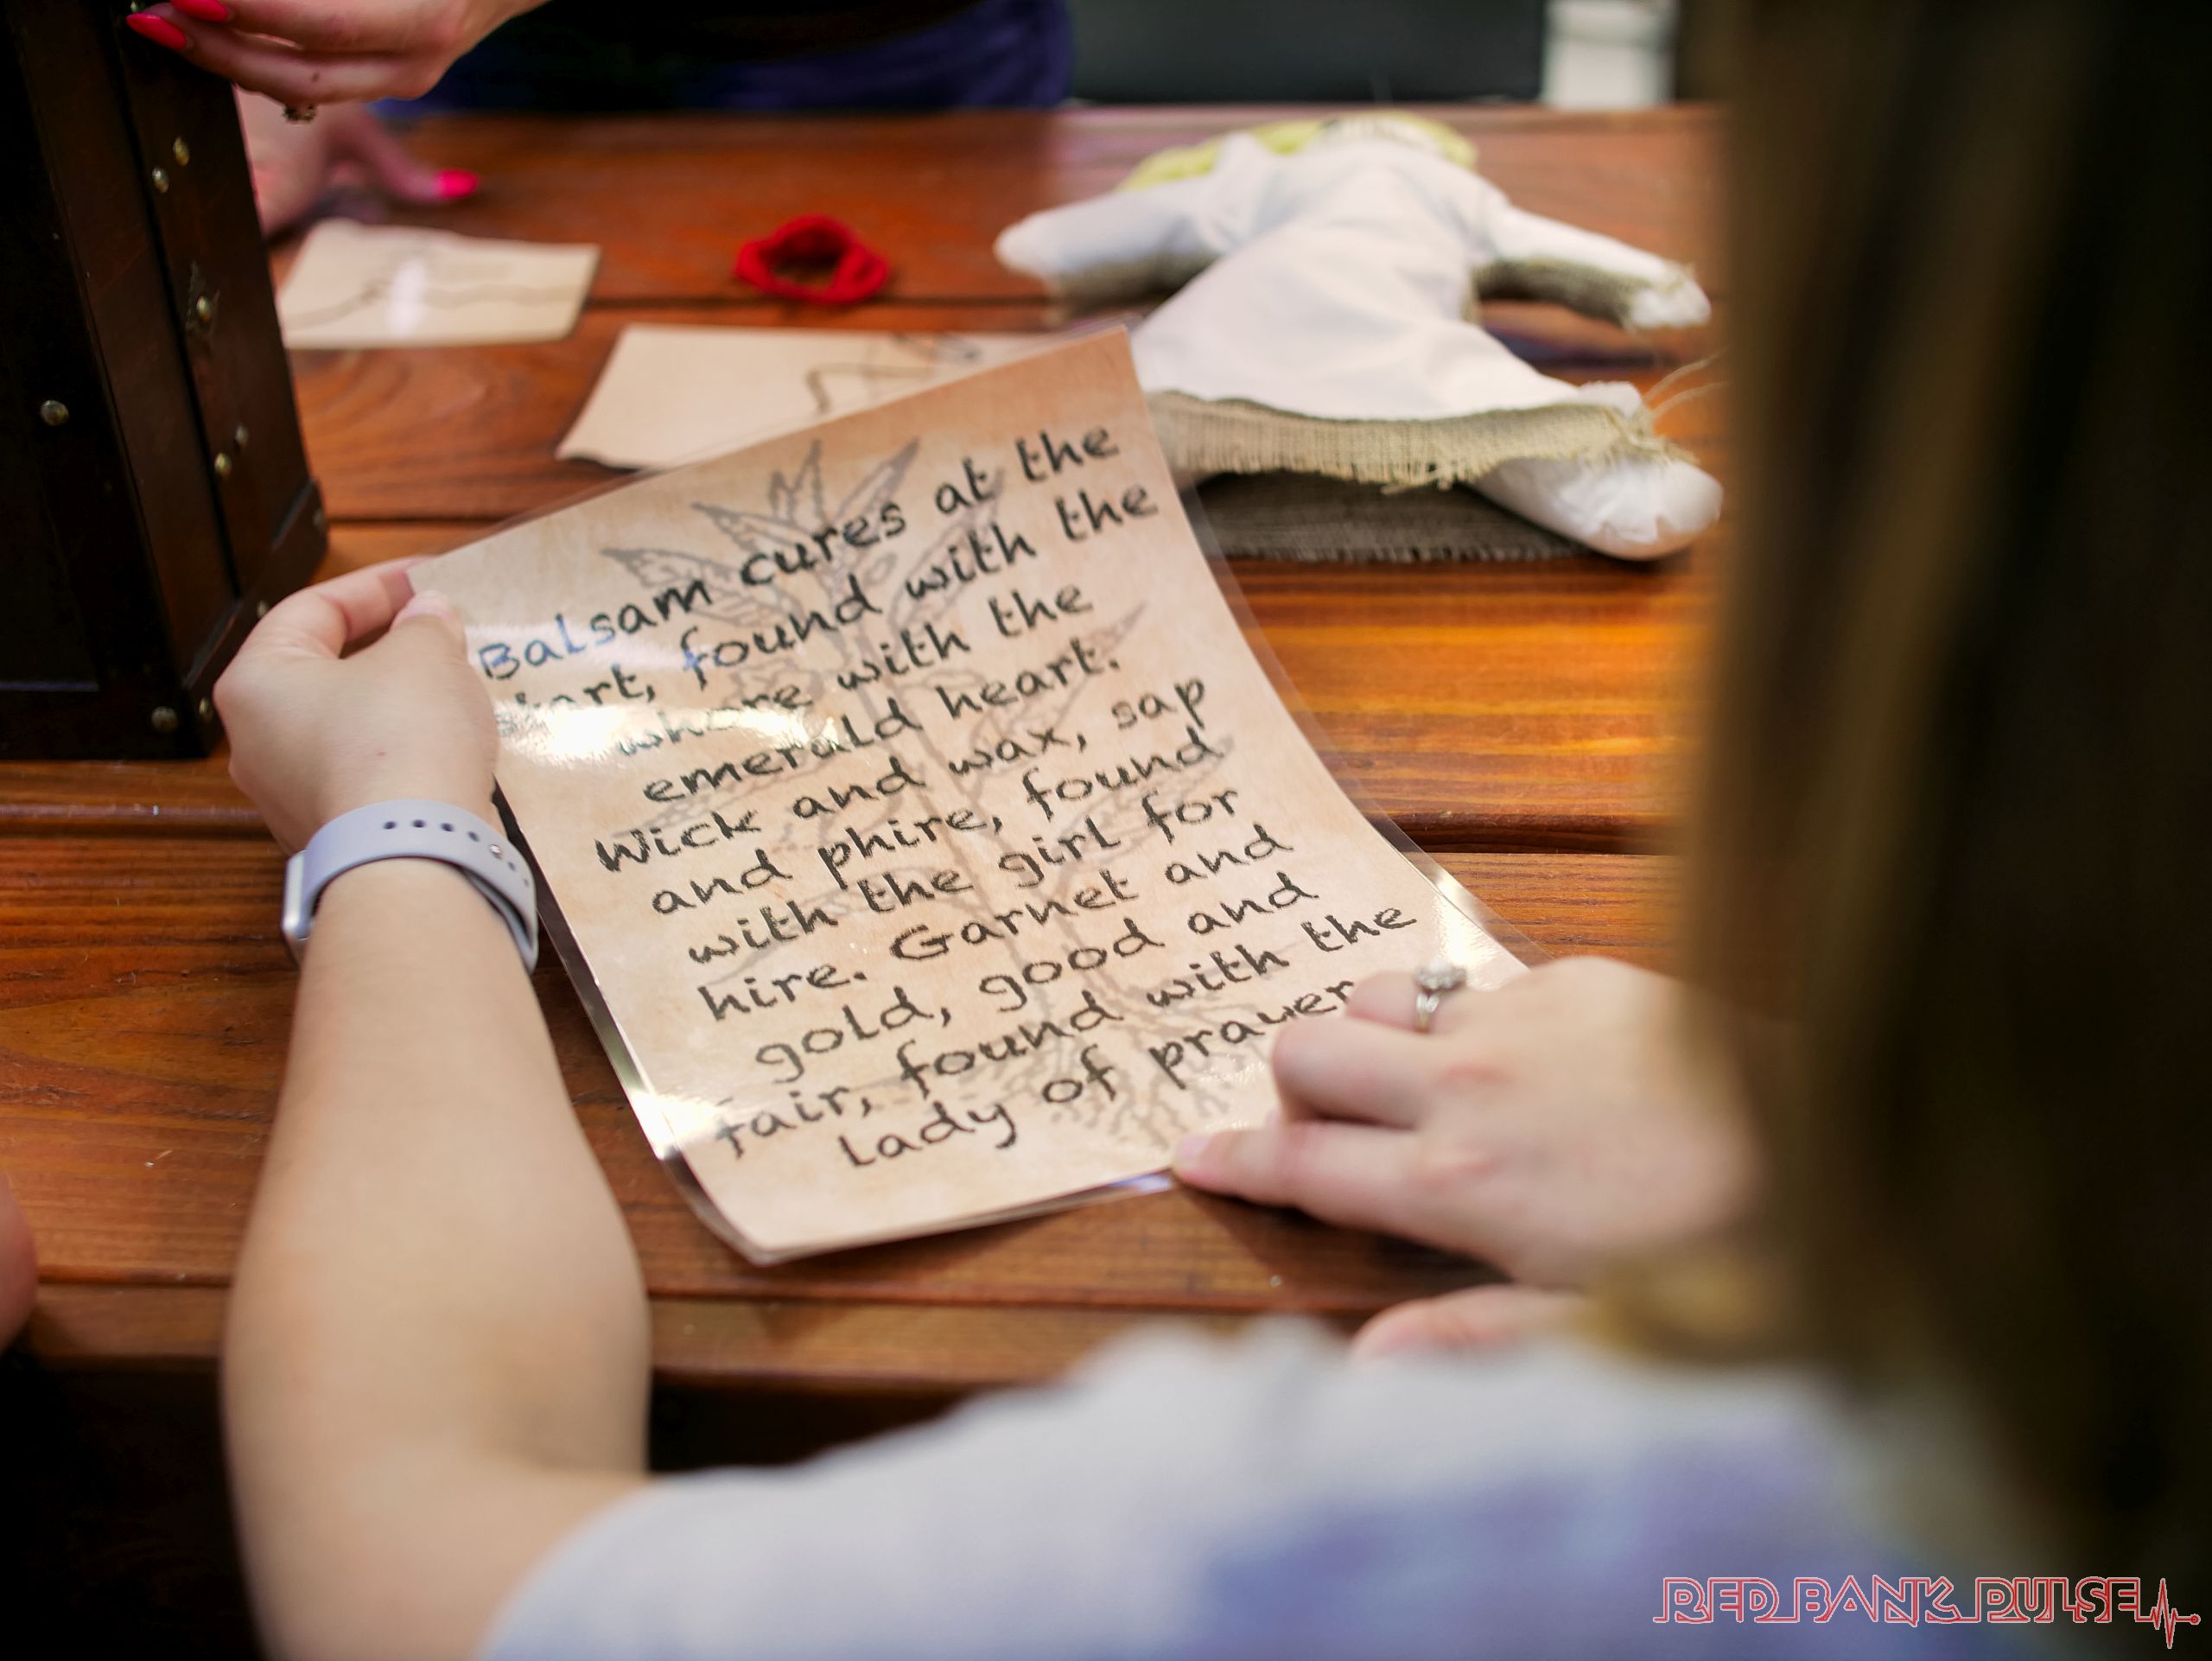 Balsam cures at the
found with the
where with the
emerald heart.
Wick and wax, sap
and phire, found
with the girl for
hire. Garnet and
gold, good and
fair, found with the
lady of prayer
RED BANK PULSE